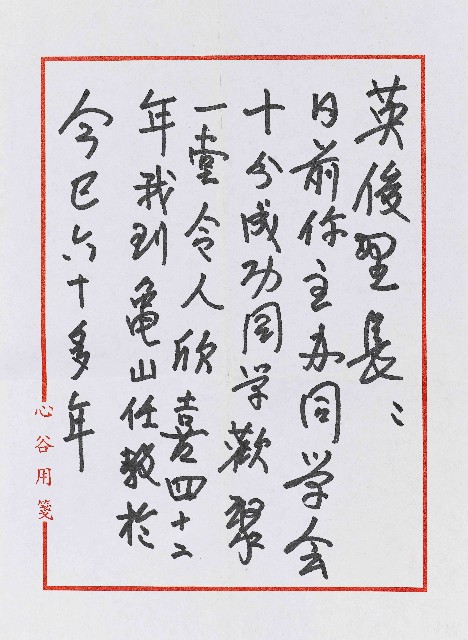 英俊里長：
日前你主办同学会
十分成功同学歡聚
一堂令人欣喜四十二
年我到龜山任教於
今已六十多年
心谷用箋